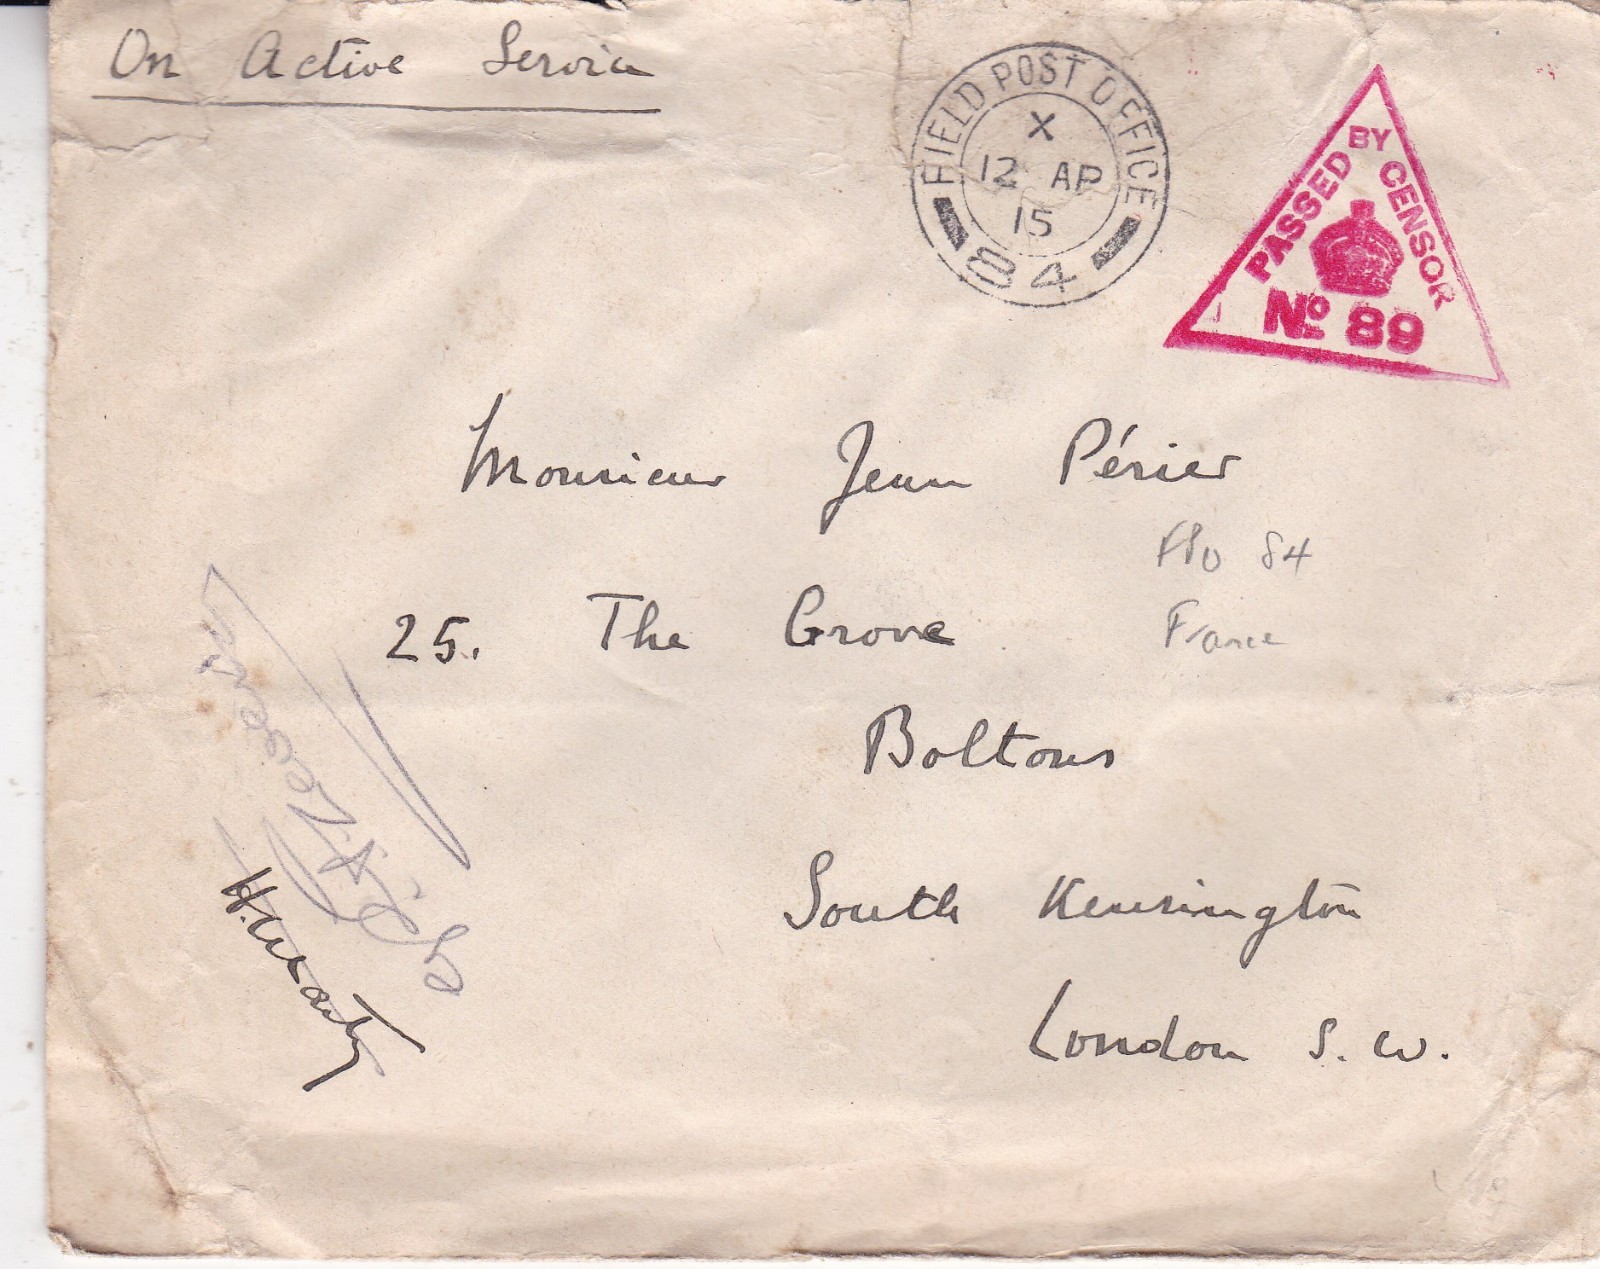 On Active Service
FIELD POST OFFICE
X
12 AP
15
84
PASSED BY CENSOR
No 89
Monsieur Jean Périer
FPO 84
25. The Grove
France
Boltons
South Kensington
London S.W.